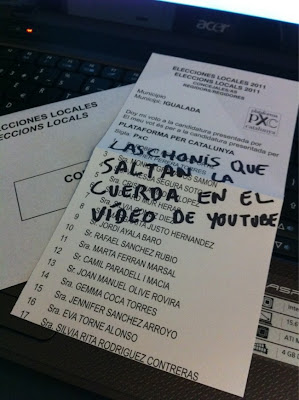 acer
ELECCIONES LOCALES 2011
ELECCIONS LOCALS 2011
CONCEJALES/AS
REGIDORS/REGIDORES
Municipio
Municipi: IGUALADA
Doy mi voto a la candidatura presentada por
El meu vot és per a la candidatura presentada per
PLATAFORMA PER CATALUNYA
Sigla: PxC
PxC
LAS CHONIS QUE
SALTAN LA
CUERDA EN EL
VÍDEO DE YOUTUBE
JUSTO HERNANDEZ
9
JORDI AYALA BARO
10 Sr. RAFAEL SANCHEZ RUBIO
11 Sra. MARTA FERRAN MARSAL
12 Sr. CAMIL PARADELL I MACIA
13 Sr. JOAN MANUEL OLIVE ROVIRA
14 Sra. GEMMA COCA TORRES
15 Sra. JENNIFER SANCHEZ ARROYO
16 Sra. EVA TORNE ALONSO
17 Sra. SILVIA RITA RODRIGUEZ CONTRERAS
ELECCIONES LOCALES
ELECCIONS LOCALS
CO
15.6
ATI M
4 GB